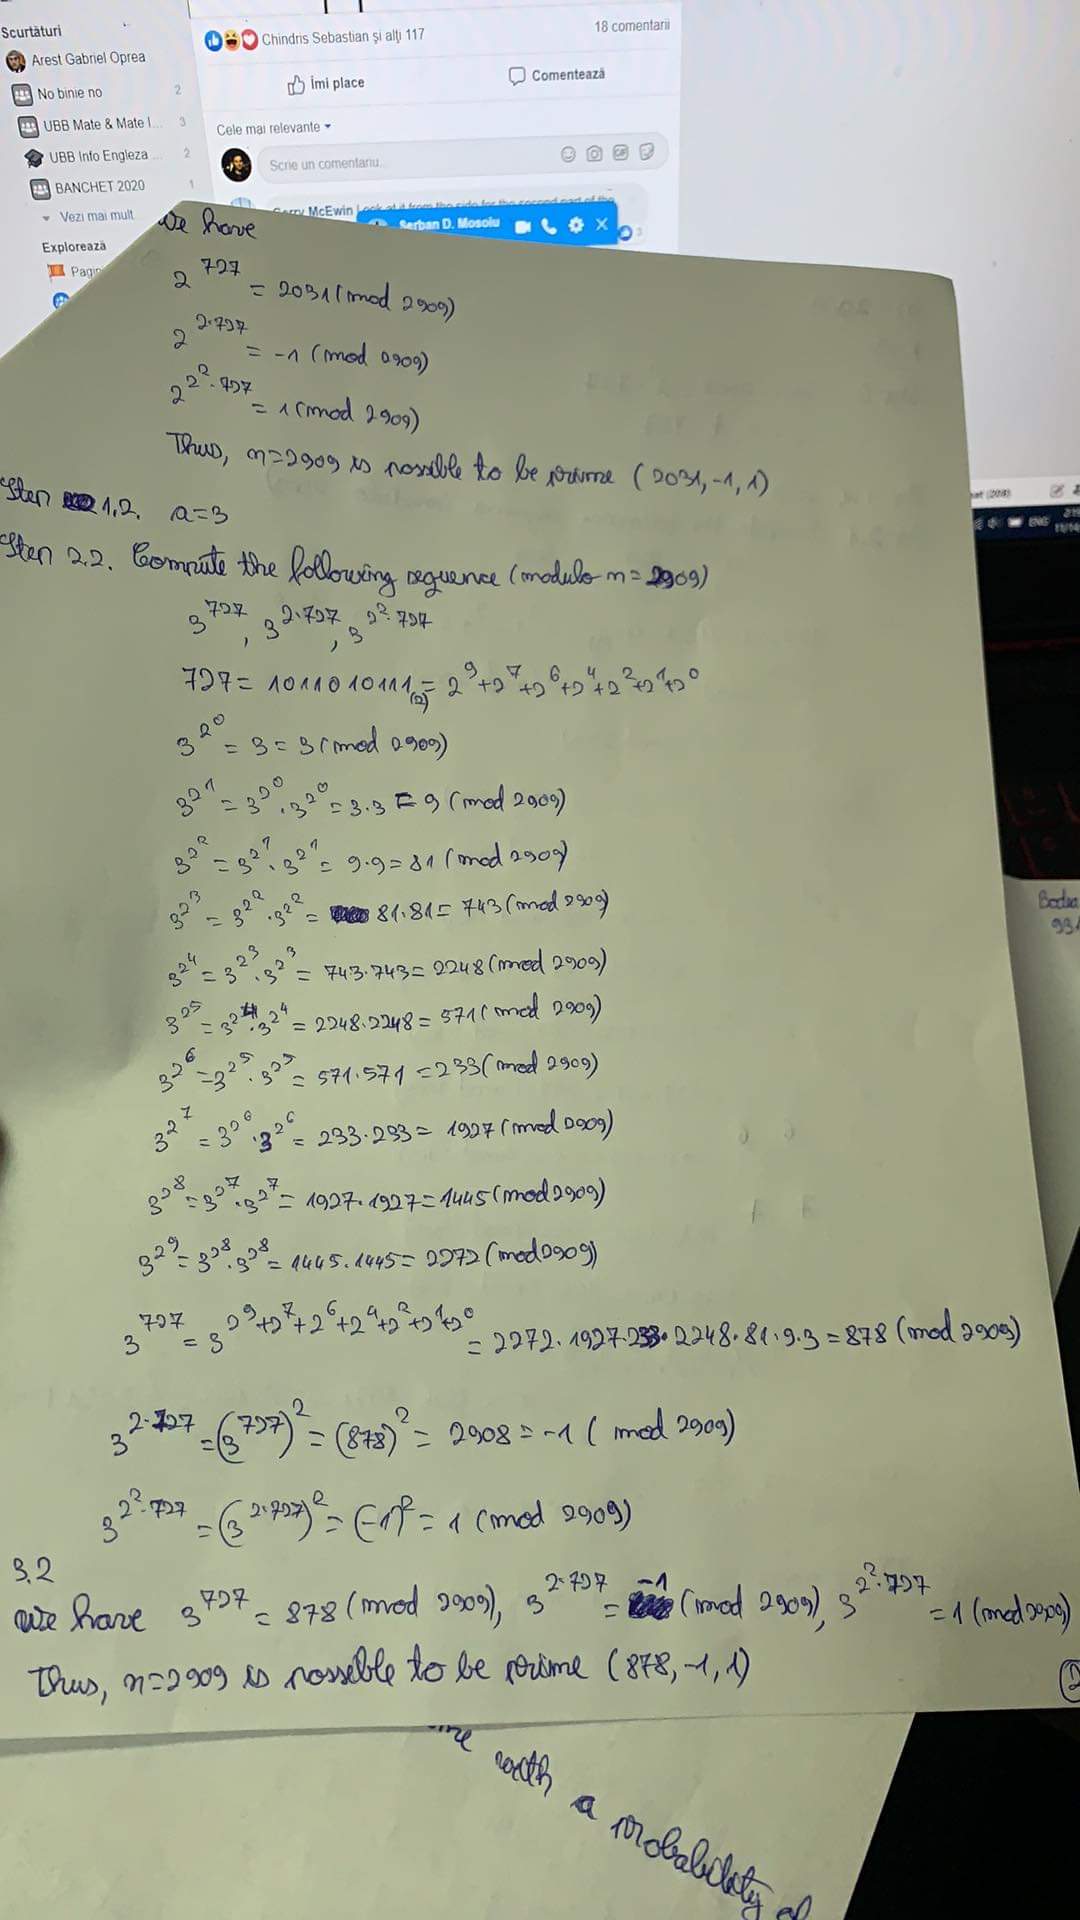 Scurtături
Arest Gabriel Oprea
No binie no 2
UBB Mate & Mate I... 3
UBB Info Engleza ... 2
BANCHET 2020 1
Vezi mai mult
Explorează
Pagin
Chindris Sebastian și alți 117
18 comentarii
Îmi place
Comentează
Cele mai relevante
Scrie un comentariu...
GIF
McEwin Look at it from the side for the second part of the
Serban D. Mosoiu
3
ENG
We have
2^727 = 2031 (mod 2909)
2^2·727 = -1 (mod 2909)
2^2^2·727 = 1 (mod 2909)
Thus, n=2909 is possible to be prime (2031, -1, 1)
Step 1.2. a=3
Step 2.2. Compute the following sequence (modulo n=2909)
3^727, 3^2·727, 3^2^2·727
727 = 1011010111(2) = 2^9+2^7+2^6+2^4+2^2+2^1+2^0
3^2^0 = 3 = 3 (mod 2909)
3^2^1 = 3^2^0·3^2^0 = 3·3 = 9 (mod 2909)
3^2^2 = 3^2^1·3^2^1 = 9·9 = 81 (mod 2909)
3^2^3 = 3^2^2·3^2^2 = 81·81 = 743 (mod 2909)
3^2^4 = 3^2^3·3^2^3 = 743·743 = 2248 (mod 2909)
3^2^5 = 3^2^4·3^2^4 = 2248·2248 = 571 (mod 2909)
3^2^6 = 3^2^5·3^2^5 = 571·571 = 233 (mod 2909)
3^2^7 = 3^2^6·3^2^6 = 233·233 = 1927 (mod 2909)
3^2^8 = 3^2^7·3^2^7 = 1927·1927 = 1445 (mod 2909)
3^2^9 = 3^2^8·3^2^8 = 1445·1445 = 2272 (mod 2909)
3^727 = 3^2^9+2^7+2^6+2^4+2^2+2^1+2^0 = 2272·1927·233·2248·81·9·3 = 878 (mod 2909)
3^2·727 = (3^727)^2 = (878)^2 = 2908 = -1 (mod 2909)
3^2^2·727 = (3^2·727)^2 = (-1)^2 = 1 (mod 2909)
3.2
We have 3^727 = 878 (mod 2909), 3^2·727 = -1 (mod 2909), 3^2^2·727 = 1 (mod 2909)
Thus, n=2909 is possible to be prime (878, -1, 1)
with a probability of
Bodea